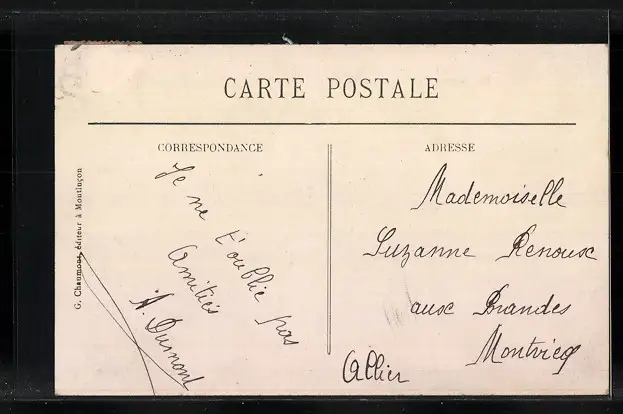 CARTE POSTALE
CORRESPONDANCE
Je ne t'oublie pas
Amitiés
A. Dumont
ADRESSE
Mademoiselle
Suzanne Renoux
aux Brandes
Montvicq
Allier
G. Chaumont, éditeur à Montluçon